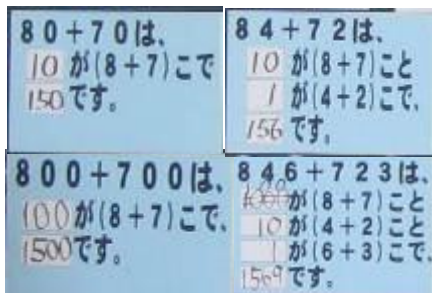 80+70は、
10が(8+7)こで
150です。
84+72は、
10が(8+7)こと
1が(4+2)こで、
156です。
800+700は、
100が(8+7)こで、
1500です。
846+723は、
100が(8+7)こと
10が(4+2)こと
1が(6+3)こで、
1569です。